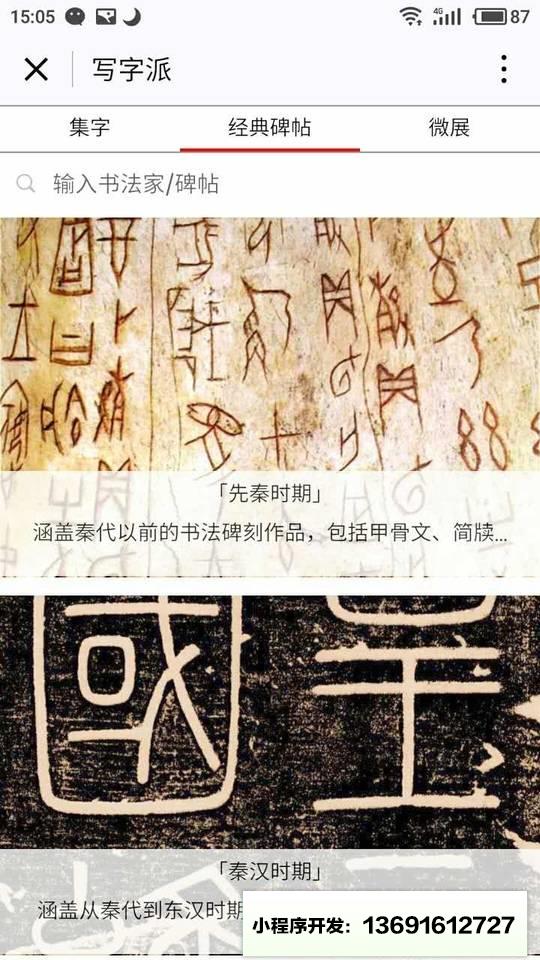 15:05
4G
87
写字派
集字
经典碑帖
微展
输入书法家/碑帖
「先秦时期」
涵盖秦代以前的书法碑刻作品，包括甲骨文、简牍...
「秦汉时期」
涵盖从秦代到东汉时期
小程序开发：13691612727